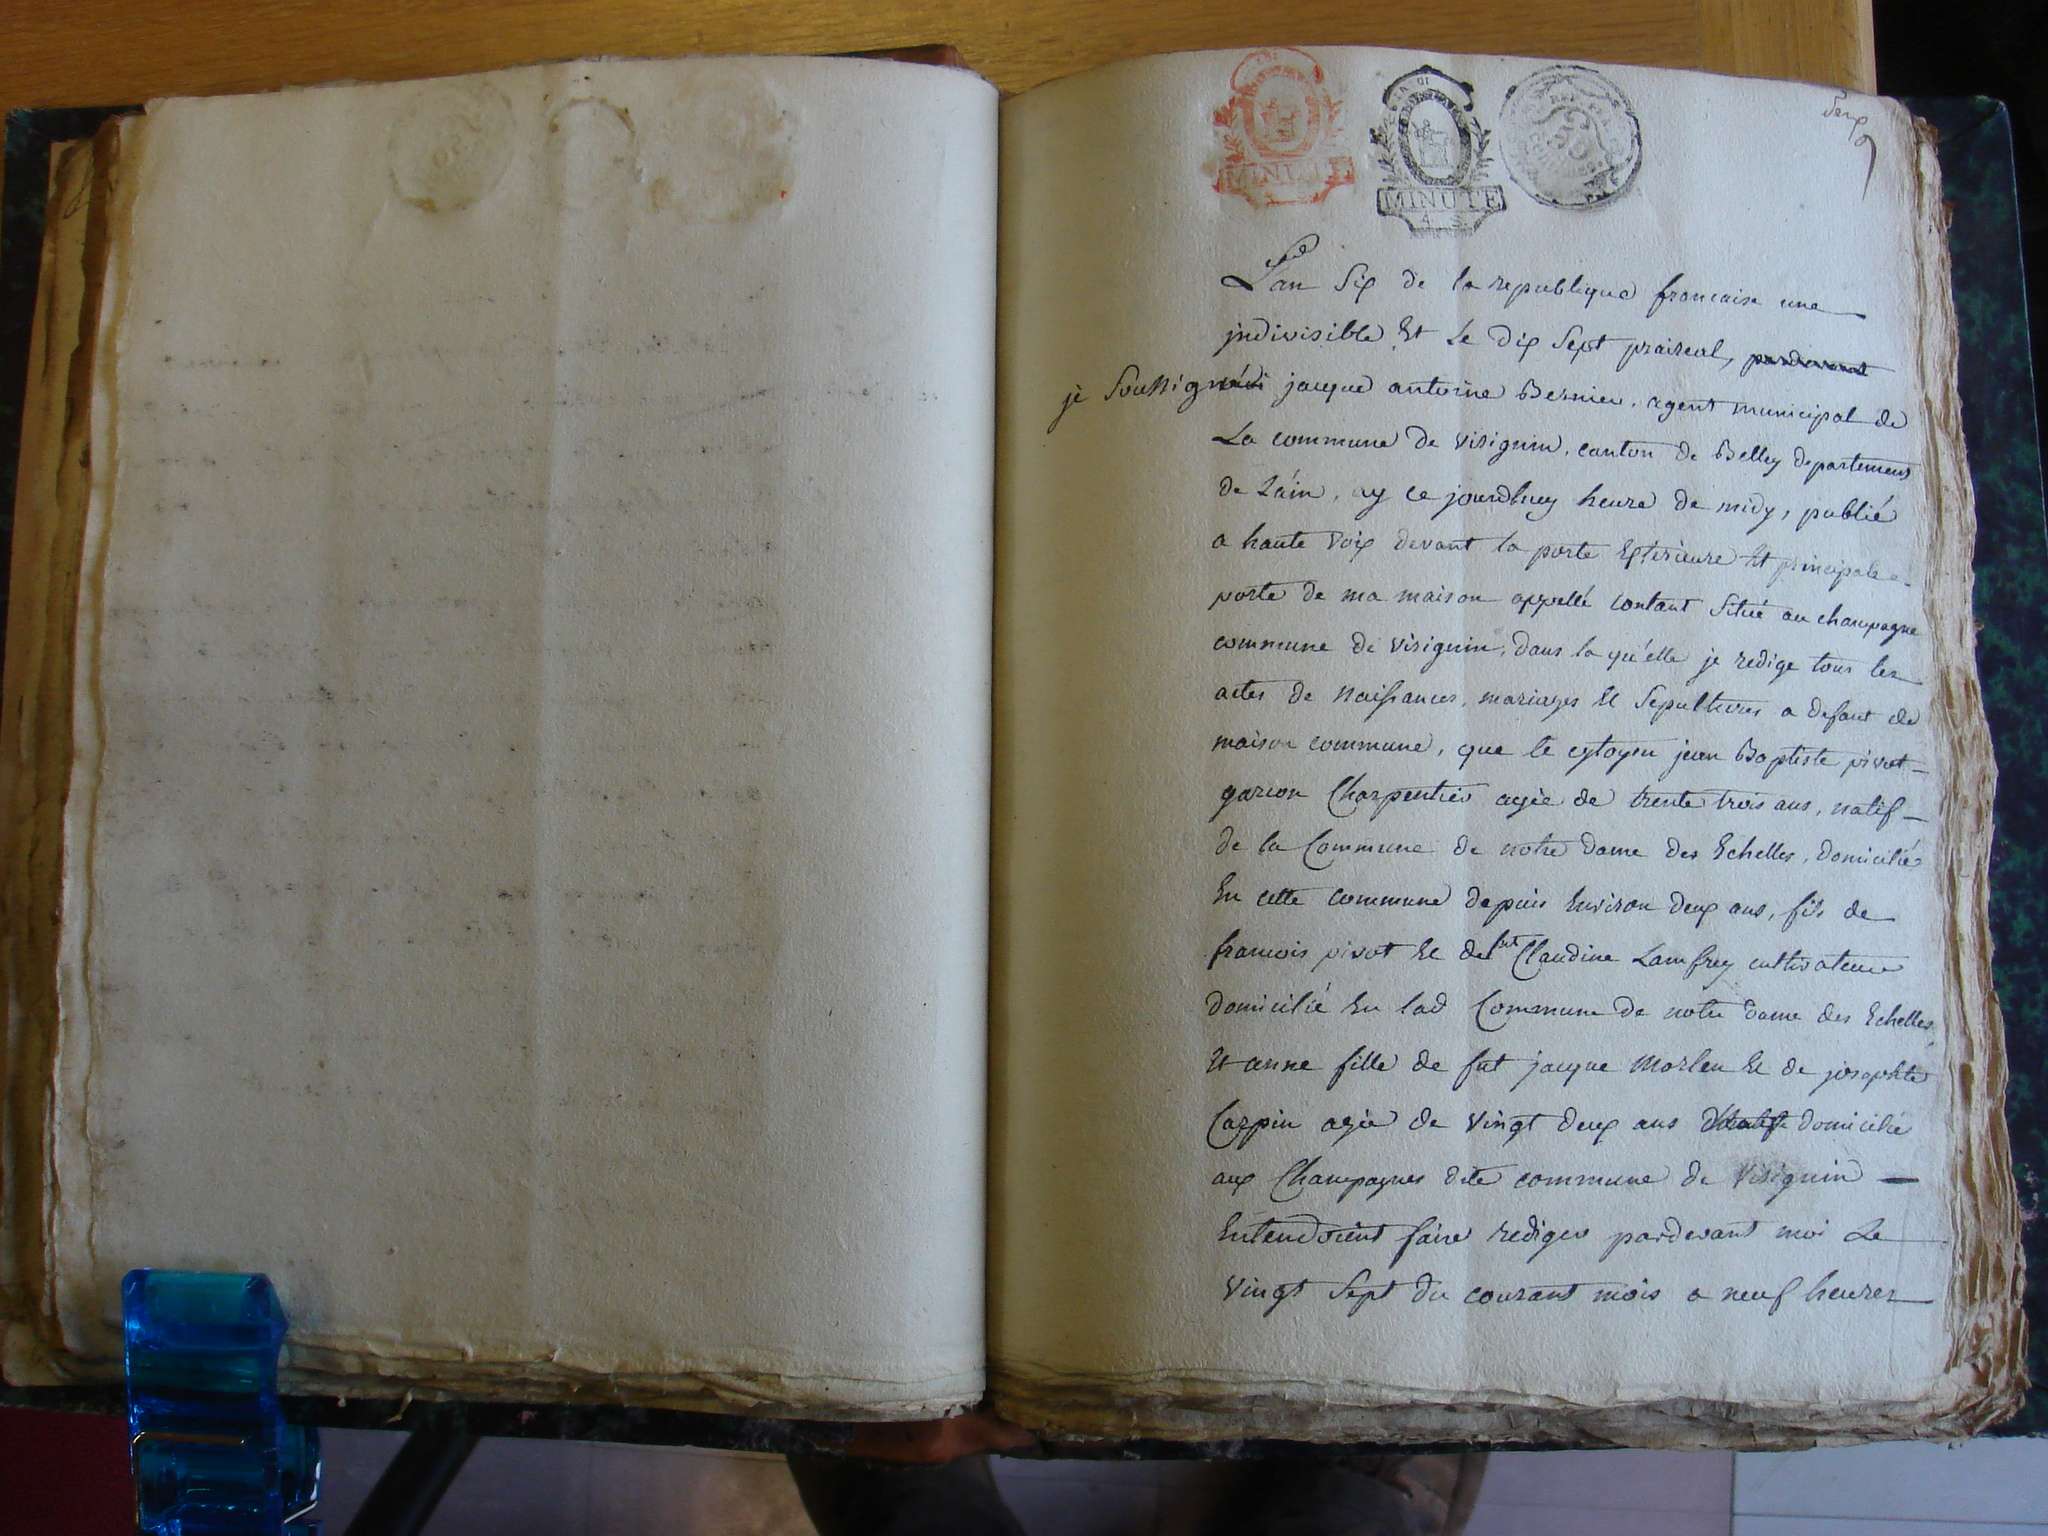 MINUTE
MINUTE
4
L'an Six de la republique francaise une
jndivisible Et Le dix Sept praireal, pardevant
je Soussigné jacque antoine Bernier, agent municipal de
La commune de Visignin, canton de Belley departement
de L'ain, ay ce jourdhuy heure de midy, publié
a haute Voix devant la porte Exterieure Et principale
porte de ma maison appellé contant Situé au champagne
commune de Visignin, dans la qu'elle je redige tous les
actes de Naissances, mariages Et Sepultures a defaut de
maison commune, que le cytoyen jean Baptiste pivot
garcon Charpentier agée de trente trois ans, natif
de la Commune de notre dame des Echelles, domicilié
En cette commune depuis Environ deux ans, fils de
francois pivot Et de fut Claudine Lamfrey cultivateur
domicilié En lad Commune de notre dame des Echelles,
Et anne fille de fut jacque Morleu Et de josephte
Carpin agée de Vingt deux ans domicilié
aux Champagnes dite commune de Visignin
Entendoient faire rediger pardevant moi Le
Vingt Sept du courant mois a neuf heures